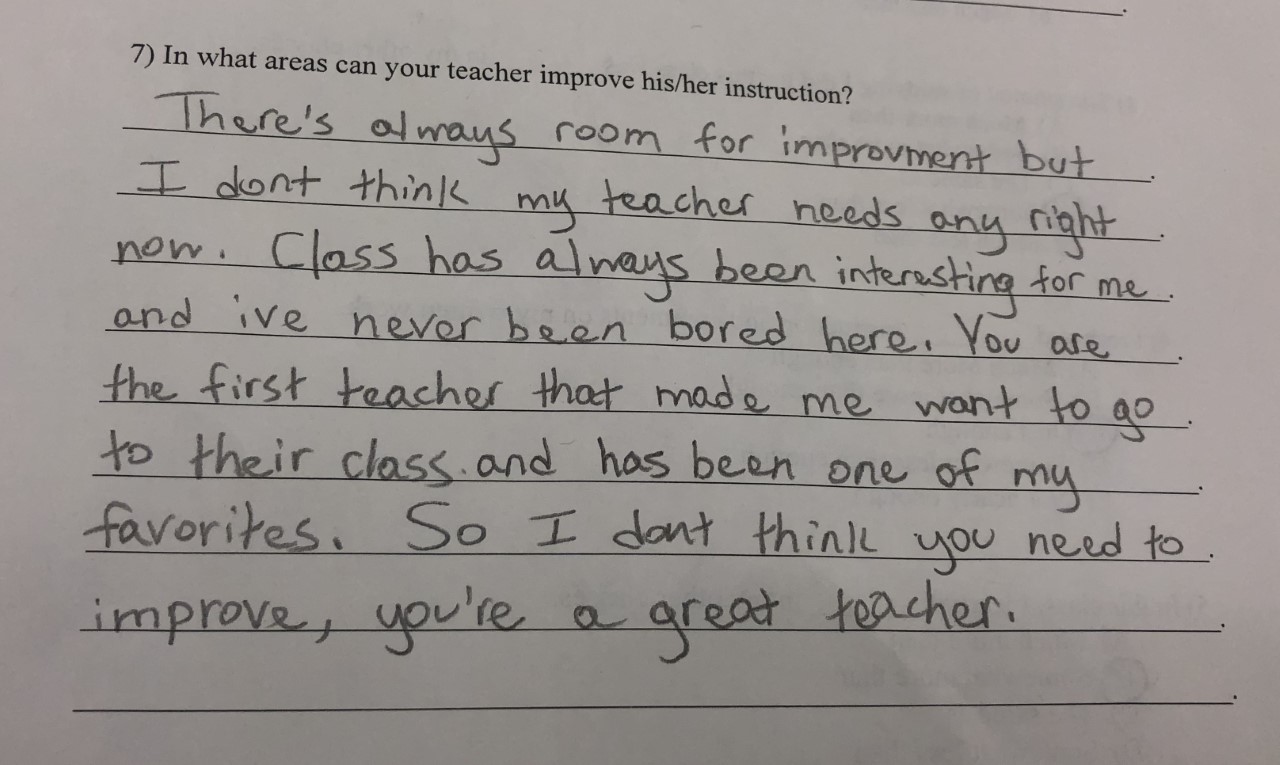 7) In what areas can your teacher improve his/her instruction?
There's always room for improvment but
I dont think my teacher needs any right
now. Class has always been interesting for me
and ive never been bored here. You are
the first teacher that made me want to go
to their class. and has been one of my
favorites. So I dont think you need to
improve, you're a great teacher.